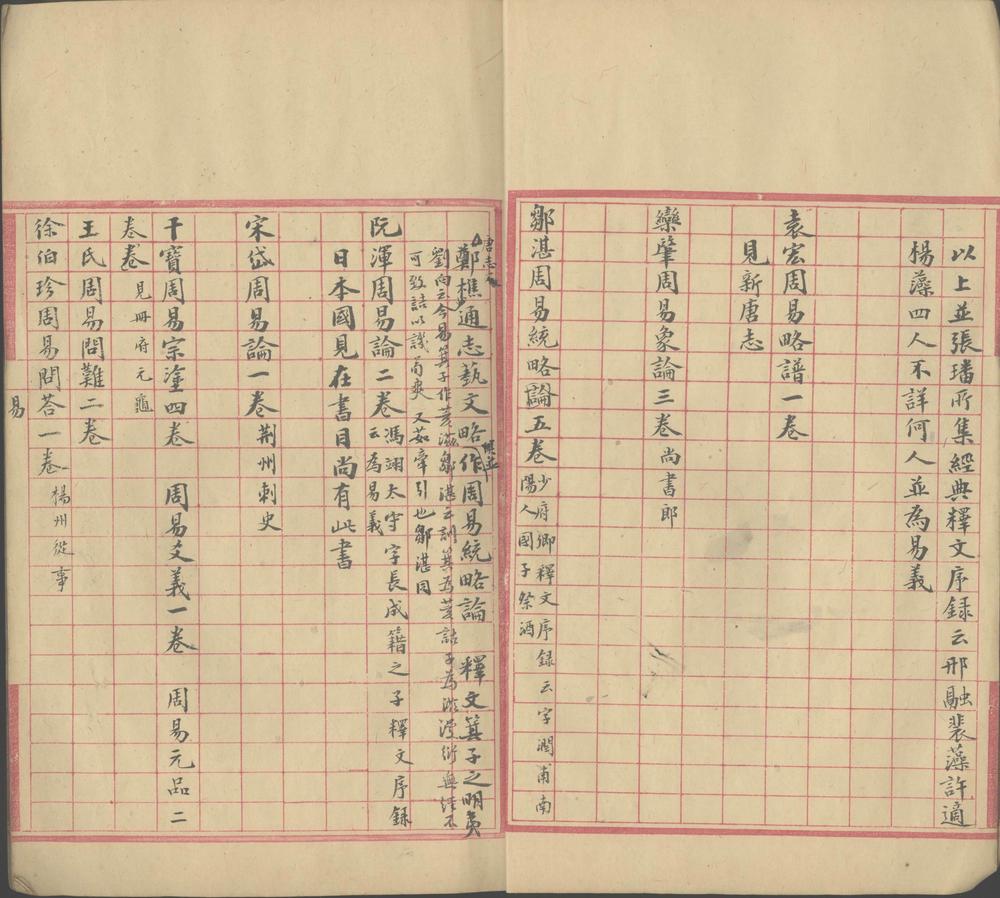 以上並張璠所集經典釋文序録云邢融裴藻許適
楊藻四人不詳何人並為易義
袁宏周易略譜一卷
見新唐志
欒肇周易象論三卷尚書郎
鄒湛周易統略論五卷少府卿釋文序録云字潤甫南
陽人國子祭酒
唐志入
鄭樵通志藝文略作周易統略論 釋文箕子之明夷
劉向云今易箕子作荄滋鄒湛云訓箕為荄詁子為滋漫衍無經不
可致詰以譏荀爽 又茹牽引也鄒湛同
阮渾周易論二卷馮翊太守字長成籍之子釋文序録
云為易義
日本國見在書目尚有此書
宋岱周易論一卷荆州刺史
干寶周易宗塗四卷 周易爻義一卷 周易元品二
卷卷見冊府元龜
王氏周易問難二卷
徐伯珍周易問荅一卷楊州從事
易